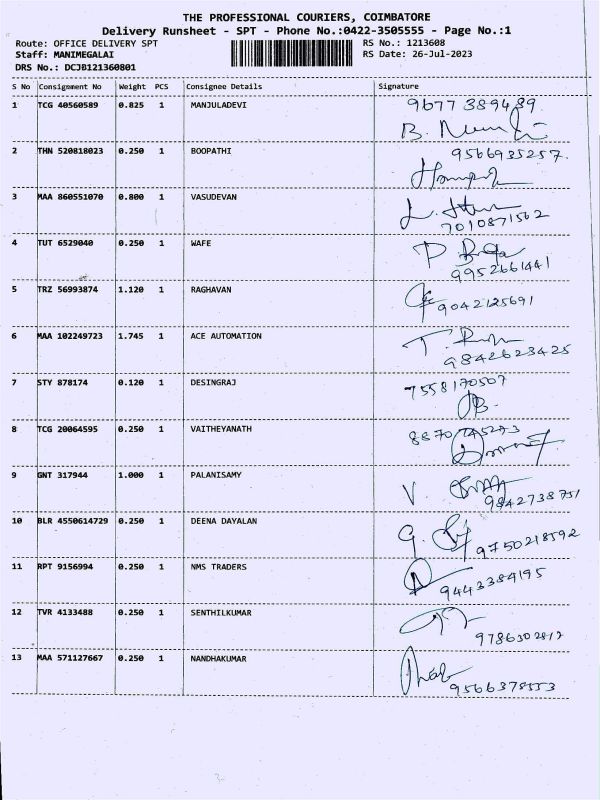 THE PROFESSIONAL COURIERS, COIMBATORE
Delivery Runsheet - SPT - Phone No.:0422-3505555 - Page No.:1
Route: OFFICE DELIVERY SPT RS No.: 1213608
Staff: MANIMEGALAI RS Date: 26-Jul-2023
DRS No.: DCJB121360801
S No Consignment No Weight PCS Consignee Details Signature
1 TCG 40560589 0.825 1 MANJULADEVI 9677389489
2 THN 520818023 0.250 1 BOOPATHI 9566935257.
3 MAA 860551070 0.800 1 VASUDEVAN
7010871562
4 TUT 6529040 0.250 1 WAFE
9952661441
5 TRZ 56993874 1.120 1 RAGHAVAN 9042125691
6 MAA 102249723 1.745 1 ACE AUTOMATION
9842623425
7 STY 878174 0.120 1 DESINGRAJ 7558170507
8 TCG 20064595 0.250 1 VAITHEYANATH
9 GNT 317944 1.000 1 PALANISAMY
9842738751
10 BLR 4550614729 0.250 1 DEENA DAYALAN
9750218592
11 RPT 9156994 0.250 1 NMS TRADERS 9443384195
12 TVR 4133488 0.250 1 SENTHILKUMAR
13 MAA 571127667 0.250 1 NANDHAKUMAR